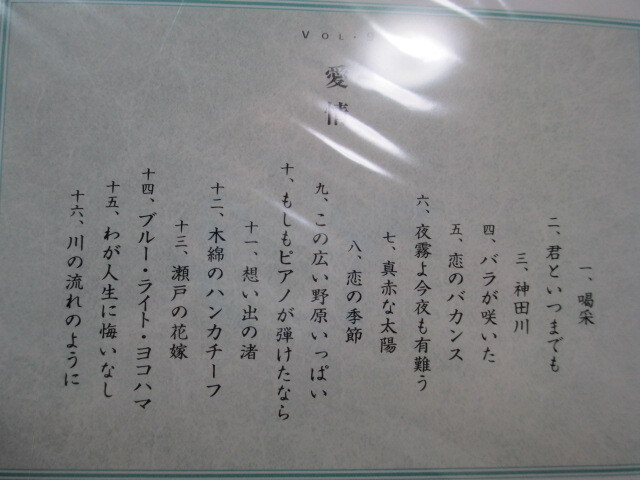 VOL.
愛情
一、喝采
二、君といつまでも
三、神田川
四、バラが咲いた
五、恋のバカンス
六、夜霧よ今夜も有難う
七、真赤な太陽
八、恋の季節
九、この広い野原いっぱい
十、もしもピアノが弾けたなら
十一、想い出の渚
十二、木綿のハンカチーフ
十三、瀬戸の花嫁
十四、ブルー・ライト・ヨコハマ
十五、わが人生に悔いなし
十六、川の流れのように